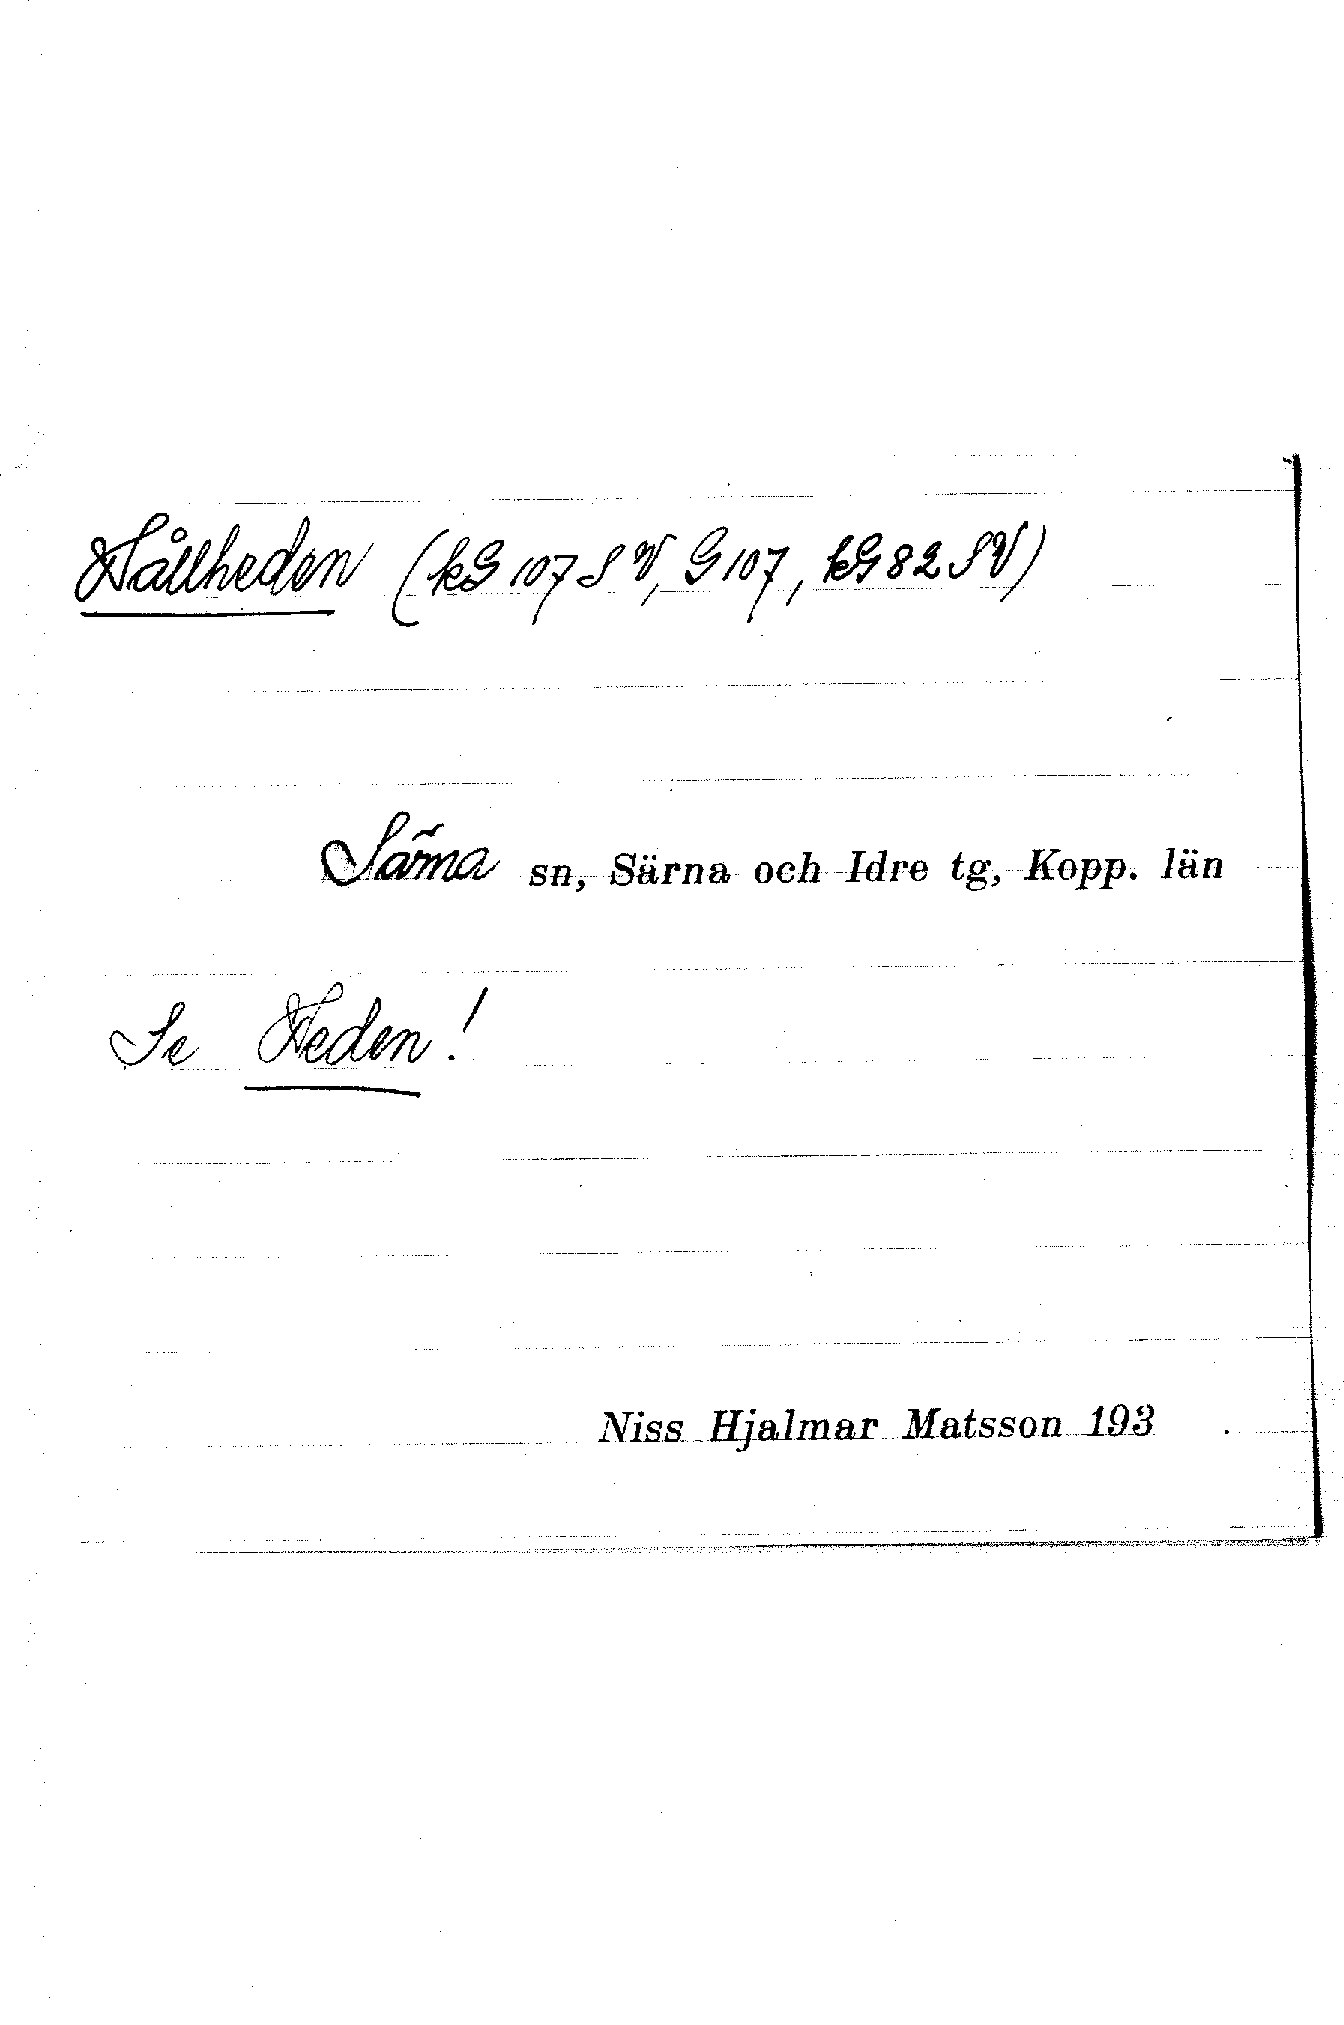 Hållheden (kG 107 SV, G 107, kG 82 SV)
Särna sn, Särna och Idre tg, Kopp. län
Se Heden!
Niss Hjalmar Matsson 193 .